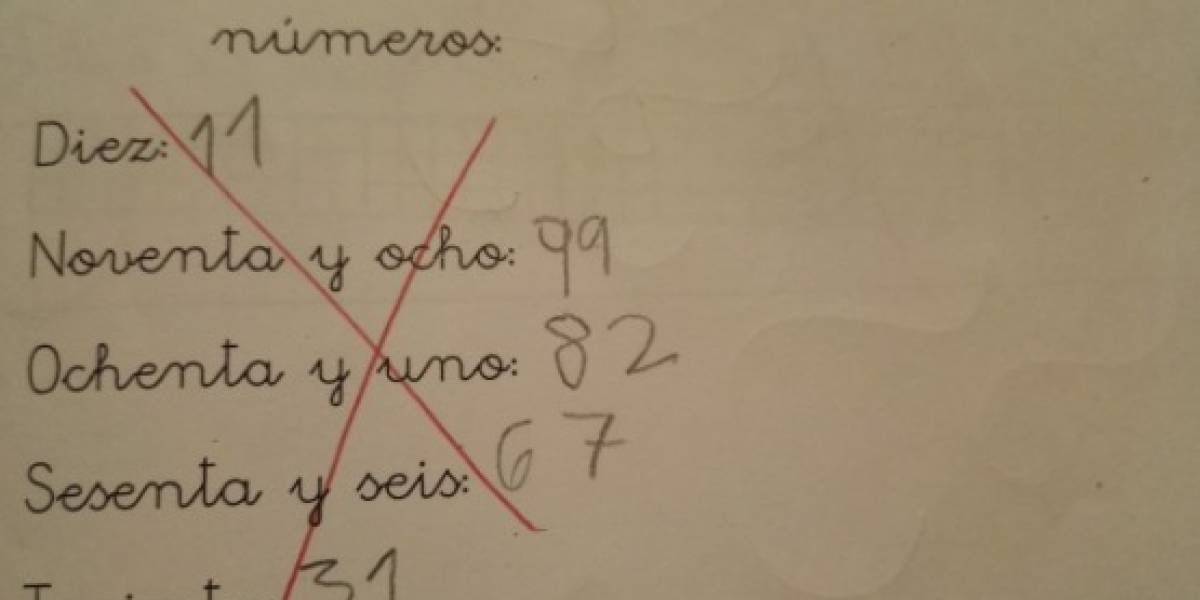 números:
Diez: 11
Noventa y ocho: 99
Ochenta y uno: 82
Sesenta y seis: 67
31